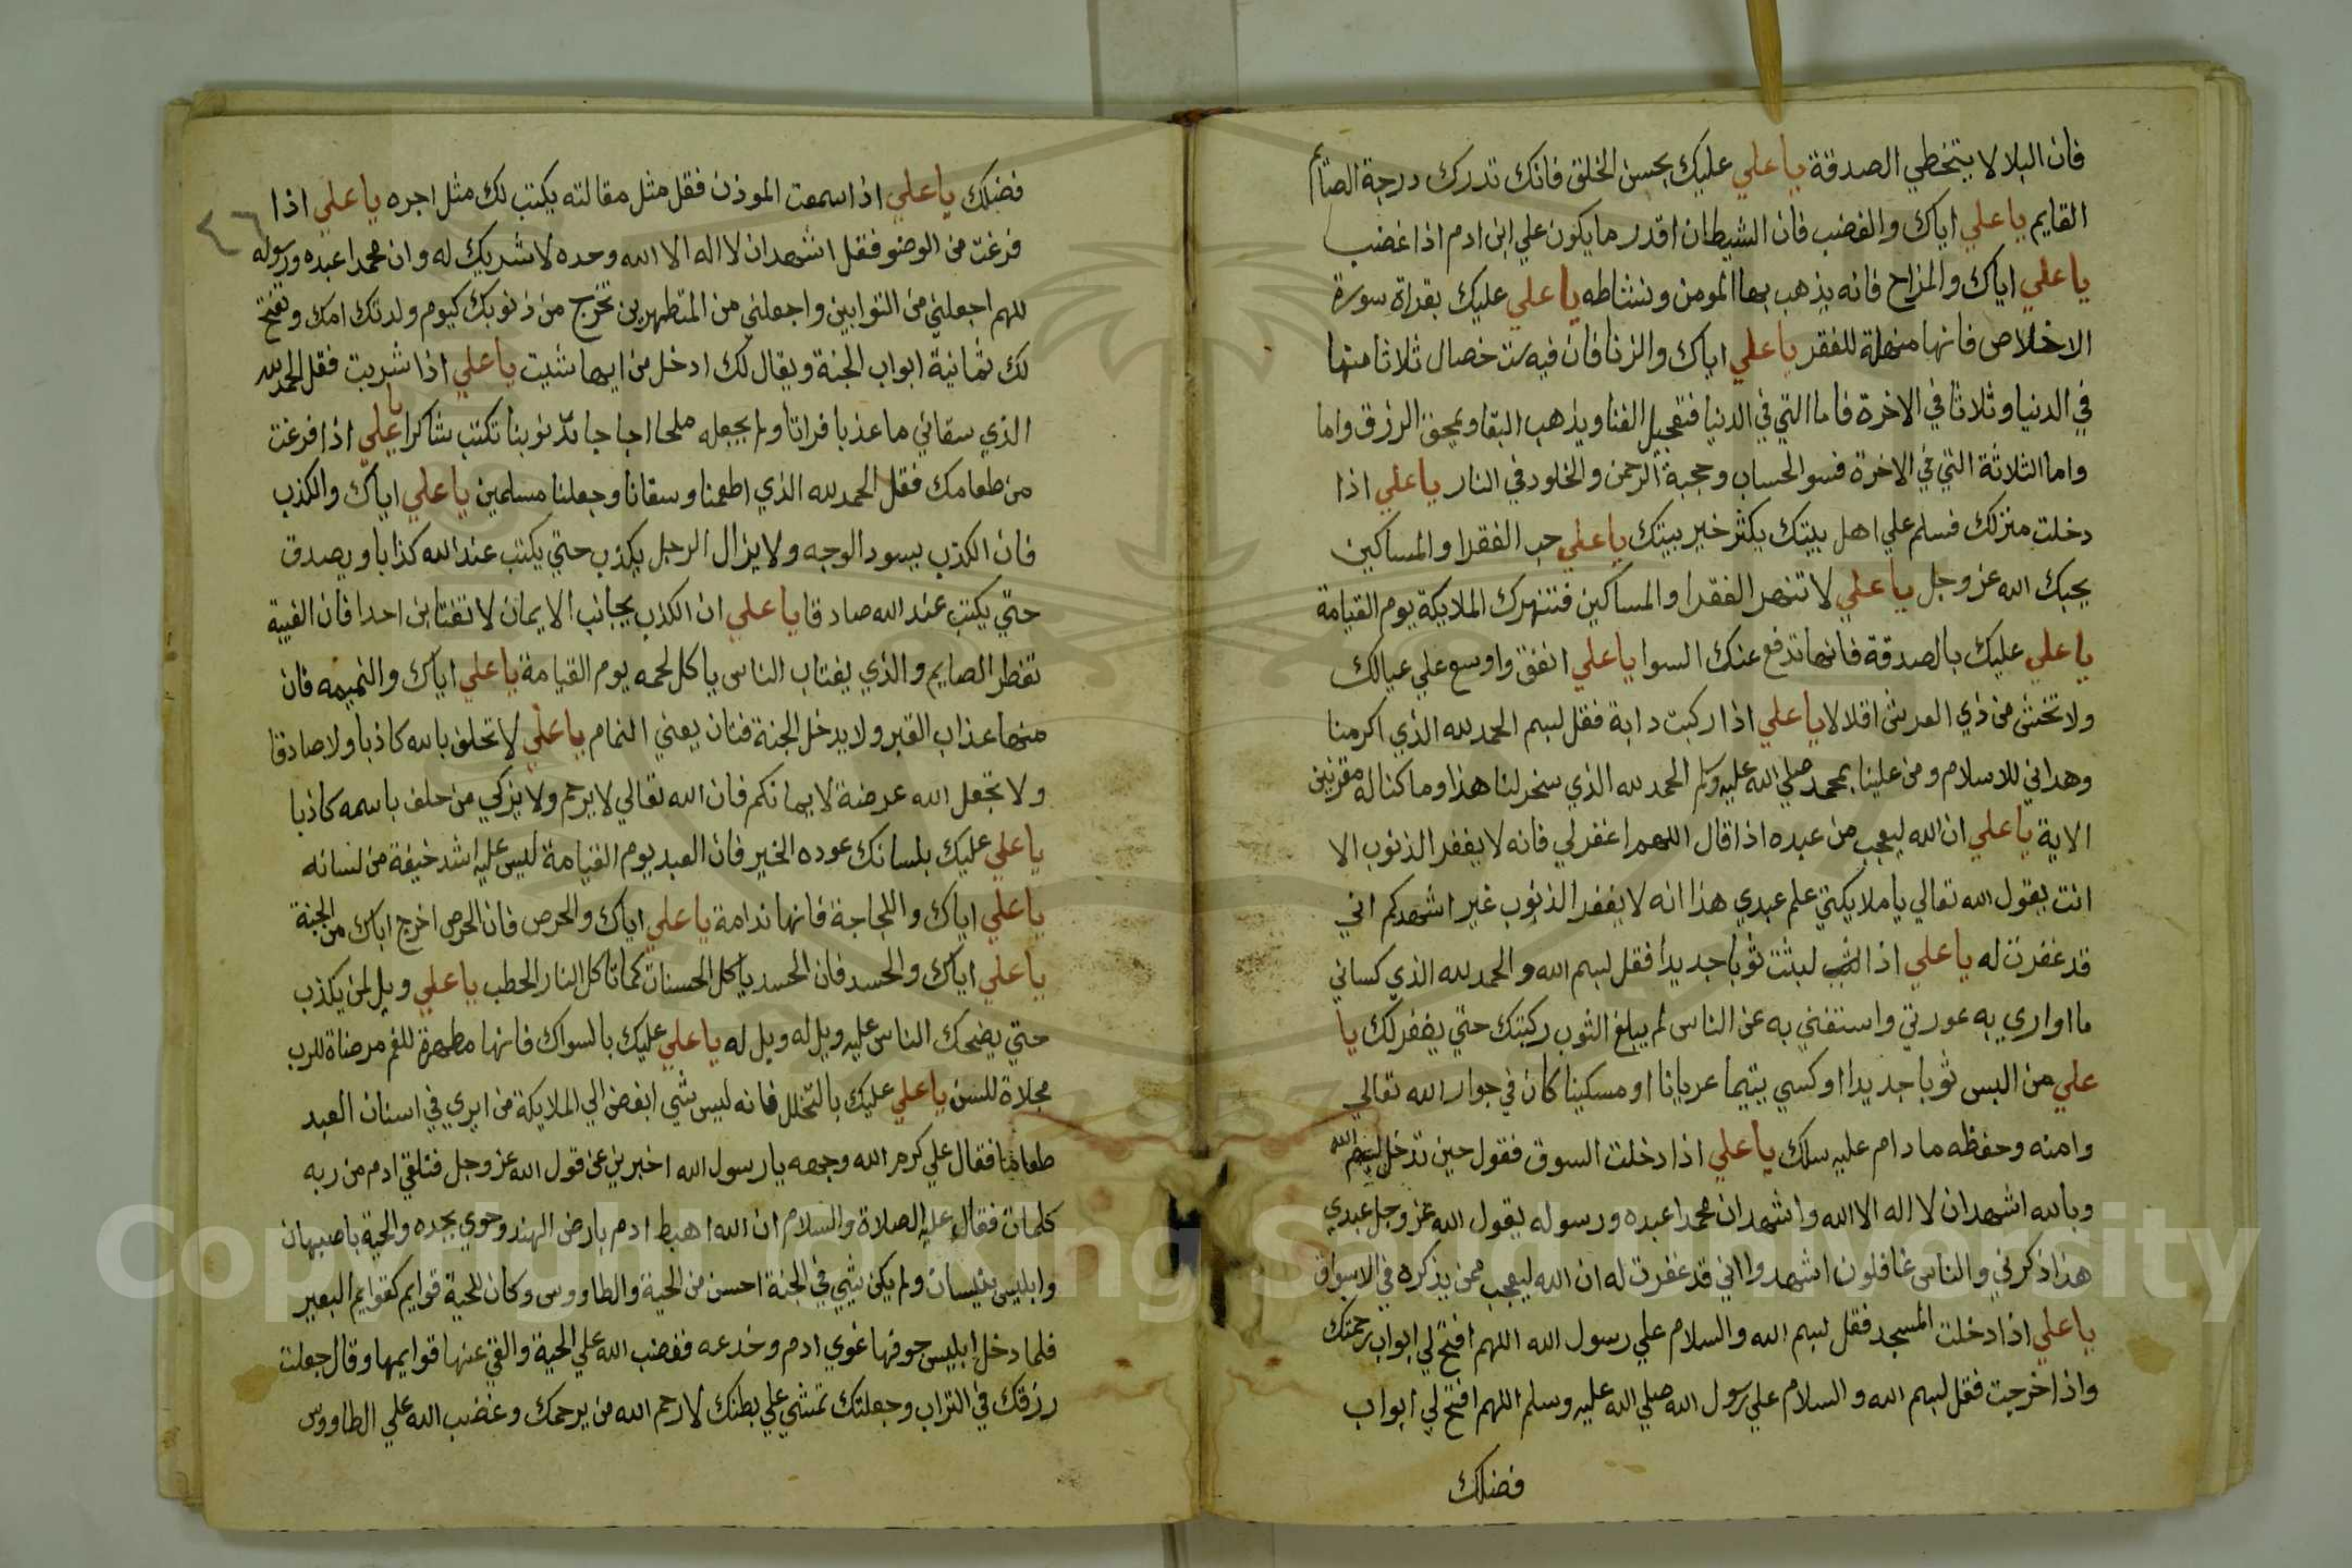 فان البلا لا يتخطي الصدقة يا علي عليك بحسن الخلق فانك تدرك درجة الصايم
القايم يا علي اياك والغضب فان الشيطان اقدر ما يكون علي ابن ادم اذا غضب
يا علي اياك والمزاح فانه يذهب بها المومن ونشاطه يا علي عليك بقراة سورة
الاخلاص فانها منهاة للفقر يا علي اياك والزنا فان فيه ست خصال ثلاثا منها
في الدنيا وثلاثا في الاخرة فاما التي في الدنيا فتعجيل الفنا ويذهب البقا ويمحق الرزق واما
واما الثلاثة التي في الاخرة فسو الحساب وحجبة الرحمن والخلود في النار يا علي اذا
دخلت منزلك فسلم علي اهل بيتك يكثر خير بيتك يا علي حب الفقرا والمساكين
يحبك الله عز وجل يا علي لا تنهر الفقرا والمساكين فتنهرك الملايكة يوم القيامة
يا علي عليك بالصدقة فانها تدفع عنك السوا يا علي انفق واوسع علي عيالك
ولا تخش من ذي العرش اقلالا يا علي اذا ركبت دابة فقل بسم الحمد لله الذي اكرمنا
وهداني للاسلام ومن علينا بمحمد صلي الله عليه وسلم الحمد لله الذي سخر لنا هذا وما كنا له مقرنين
الاية يا علي ان الله ليعجب من عبده اذا قال اللهم اغفر لي فانه لا يغفر الذنوب الا
انت يقول الله تعالي يا ملايكتي علم عبدي هذا انه لا يغفر الذنوب غير اشهدكم اني
قد غفرت له يا علي اذا لبثت ثوبا جديدا فقل بسم الله والحمد لله الذي كساني
ما اواري به عورتي واستغني به عن الناس لم يبلغ الثوب ركبتك حتي يغفر لك يا
علي من البس ثوبا جديدا او كسي يتيما عريانا او مسكينا كان في جوار الله تعالي
وامنه وحفظه ما دام عليه سلك يا علي اذا دخلت السوق فقول حين تدخل بسم الله
وبالله اشهد ان لا اله الا الله واشهد ان محمدا عبده ورسوله يقول الله عز وجل عبدي
هذا ذكرني والناس غافلون اشهدوا اني قد غفرت له ان الله ليعجب ممن يذكره في الاسواق
يا علي اذا دخلت المسجد فقل بسم الله والسلام علي رسول الله اللهم افتح لي ابواب رحمتك
واذا خرجت فقل بسم الله والسلام علي رسول الله صلي الله عليه وسلم اللهم افتح لي ابواب
فضلك
٤٦
فضلك يا علي اذا سمعت الموذن فقل مثل مقالته يكتب لك مثل اجره يا علي اذا
فرغت من الوضو فقل اشهد ان لا اله الا الله وحده لا شريك له وان محمدا عبده ورسوله
للهم اجعلني من التوابين واجعلني من المتطهرين تخرج من ذنوبك كيوم ولدتك امك وتفتح
لك ثمانية ابواب الجنة ويقال لك ادخل من ايها شيت يا علي اذا شربت فقل الحمد لله
الذي سقاني ما عذبا فراتا ولم يجعله ملحا اجاجا بذنوبنا تكتب شاكرا يا علي اذا فرغت
من طعامك فقل الحمد لله الذي اطعمنا وسقانا وجعلنا مسلمين يا علي اياك والكذب
فان الكذب يسود الوجه ولا يزال الرجل يكذب حتي يكتب عند الله كذابا ويصدق
حتي يكتب عند الله صادقا يا علي ان الكذب يجانب الايمان لا تغتابن احدا فان الغيبة
تفطر الصايم والذي يغتاب الناس ياكل لحمه يوم القيامة يا علي اياك والنميمه فان
منها عذاب القبر ولا يدخل الجنة فتان يعني النمام يا علي لا تحلف بالله كاذبا ولا صادقا
ولا تجعل الله عرضة لايمانكم فان الله تعالي لا يرحم ولا يزكي من حلف باسمه كاذبا
يا علي عليك بلسانك عوده الخير فان العبد يوم القيامة ليس عليه اشد خيفة من لسانه
يا علي اياك واللجاجة فانها ندامة يا علي اياك والحرص فان الحرص اخرج اباك من الجنة
يا علي اياك والحسد فان الحسد ياكل الحسنات كما تاكل النار الحطب يا علي ويل لمن يكذب
حتي يضحك الناس عليه ويل له ويل له يا علي عليك بالسواك فانها مطهرة للفم مرضاة للرب
مجلاة للسن يا علي عليك بالتخلل فانه ليس شي ابغض الي الملايكة من ان يري في اسنان العبد
طعاما فقال علي كرم الله وجهه يا رسول الله اخبريني عن قول الله عز وجل فتلقي ادم من ربه
كلمات فقال عليه الصلاة والسلام ان الله اهبط ادم بارض الهند وحوي بجده والحية باصبهان
وابليس بيسان ولم يكن شي في الجنة احسن من الحية والطاووس وكان للحية قوايم كقوايم البعير
فلما دخل ابليس جوفها غوي ادم وخدعه فغضب الله علي الحية والقي عنها قوايمها وقال جعلت
رزقك في التراب وجعلتك تمشي علي بطنك لا رحم الله من يرحمك وغضب الله علي الطاووس
Copyright © King Saud University